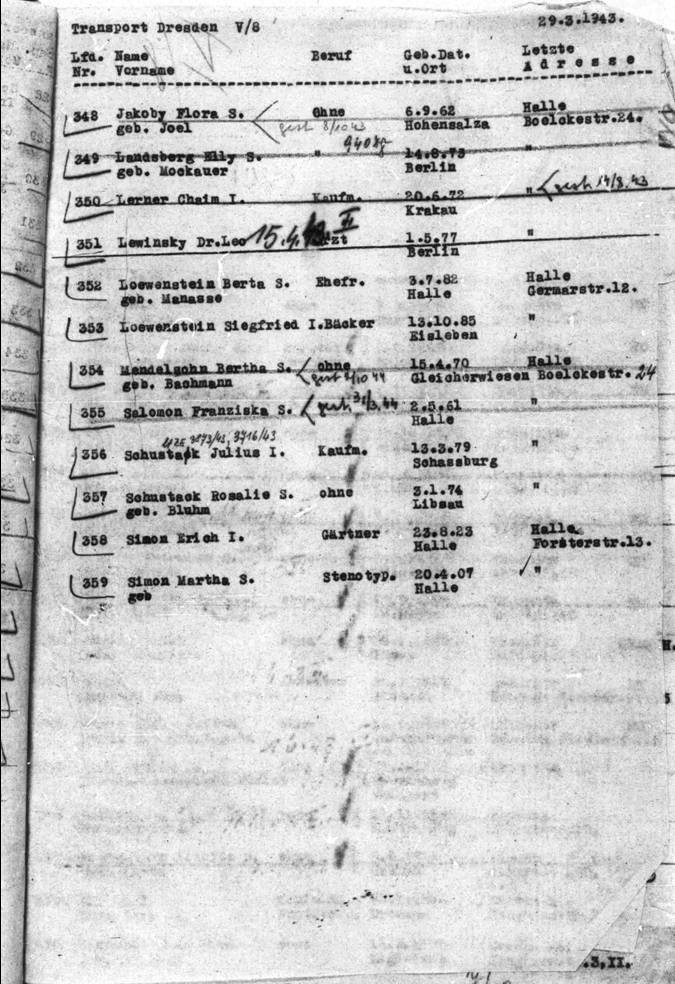 Transport Dresden V/8 29.3.1943.
Lfd. Name Beruf Geb.Dat. Letzte
Nr. Vorname u.Ort Adresse
348 Jakoby Flora S. Ohne 6.9.62 Halle
geb. Joel gest 8/10 43 Hohensalza Boelckestr.24.
349 Landsberg Elly S. " 14.8.73 "
geb. Mockauer Berlin
350 Lerner Chaim I. Kaufm. 20.6.72 " gest 14/8.43
Krakau
351 Lewinsky Dr.Leo 15.4. Arzt 1.5.77 "
Berlin
352 Loewenstein Berta S. Ehefr. 3.7.82 Halle
geb. Manasse Halle Germarstr.12.
353 Loewenstein Siegfried I.Bäcker 13.10.85 "
Eisleben
354 Mendelsohn Bertha S. ohne 15.4.70 Halle
geb. Bachmann gest 10 44 Gleicherwiesen Boelckestr. 24
355 Salomon Franziska S. gest. 31/3.44 2.5.61 "
Halle
356 Schustack Julius I. Kaufm. 13.3.79 "
Schassburg
357 Schustack Rosalie S. ohne 3.1.74 "
geb. Bluhm Libsau
358 Simon Erich I. Gärtner 23.8.23 Halle
Halle Forsterstr.13.
359 Simon Martha S. Stenotyp. 20.4.07 "
geb Halle
.3,II.